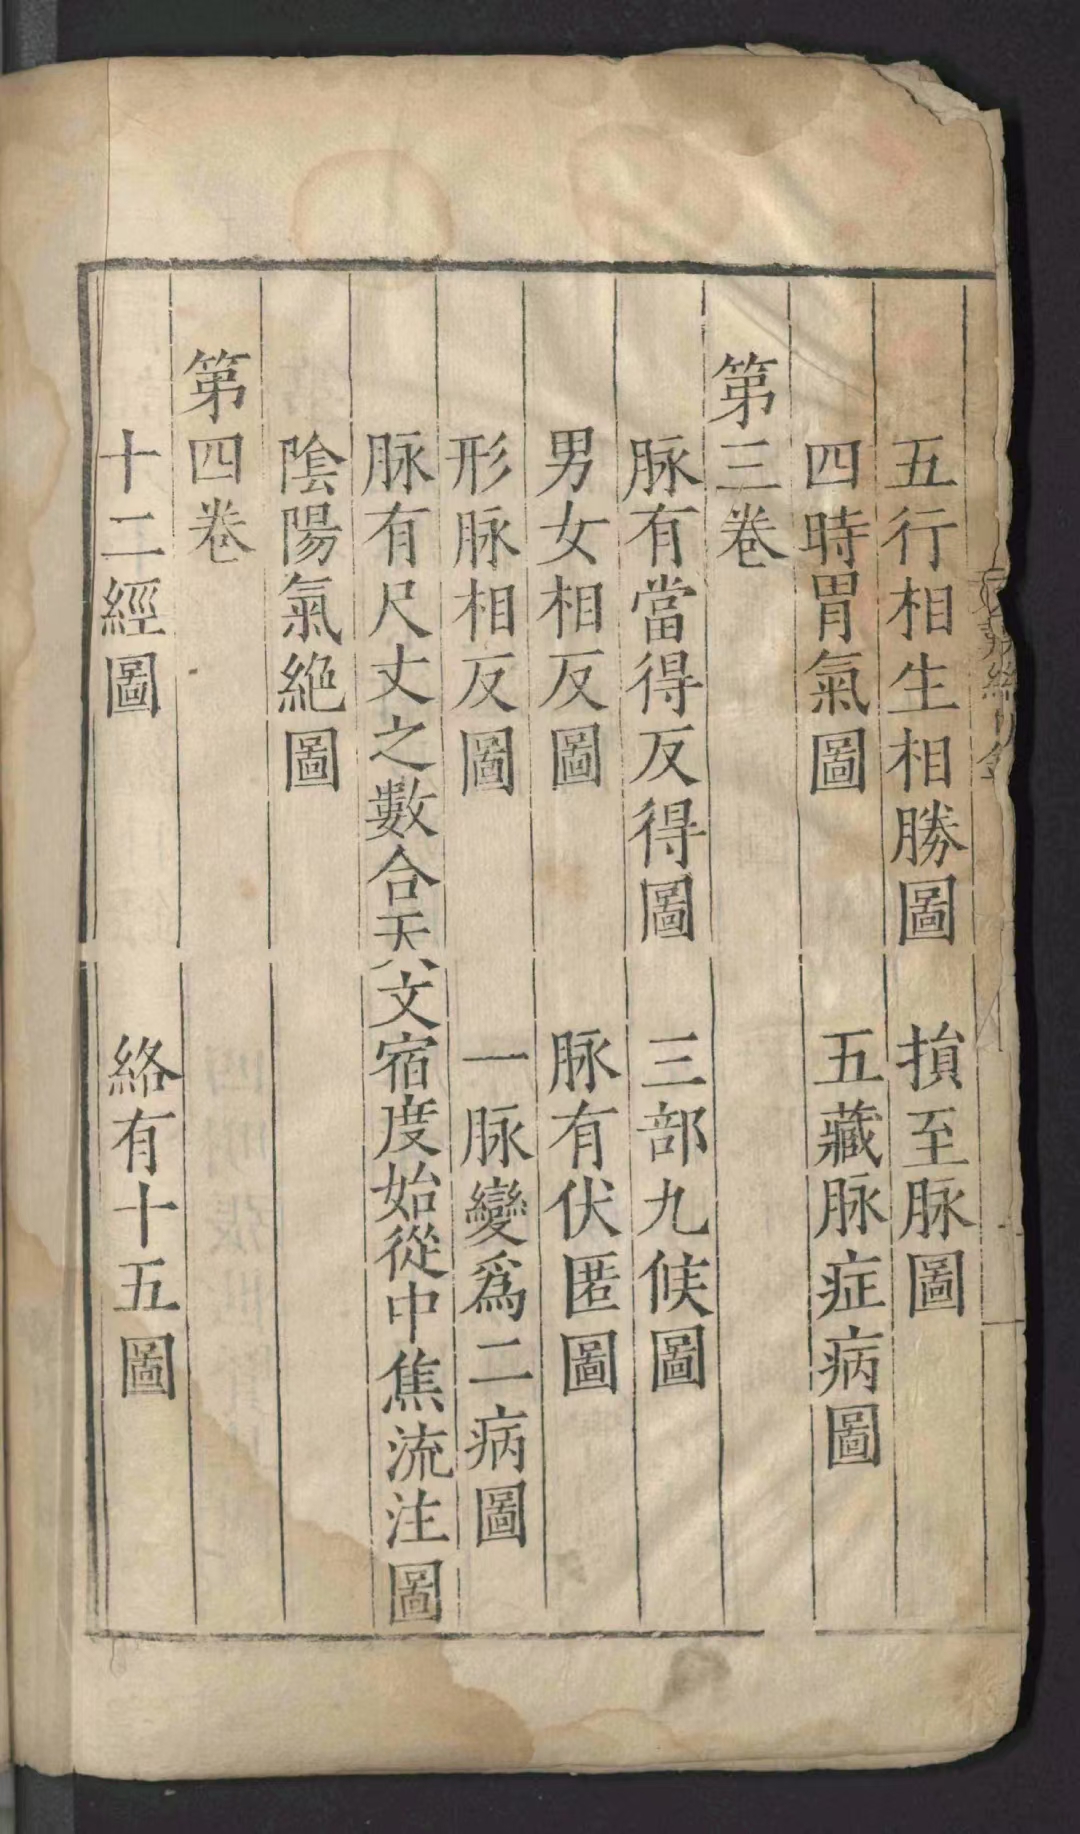 五行相生相勝圖　損至脉圖
四時胃氣圖　五藏脉症病圖
第三卷
脉有當得反得圖　三部九候圖
男女相反圖　脉有伏匿圖
形脉相反圖　一脉變爲二病圖
脉有尺丈之數合天文宿度始從中焦流注圖
陰陽氣絶圖
第四卷
十二經圖　絡有十五圖